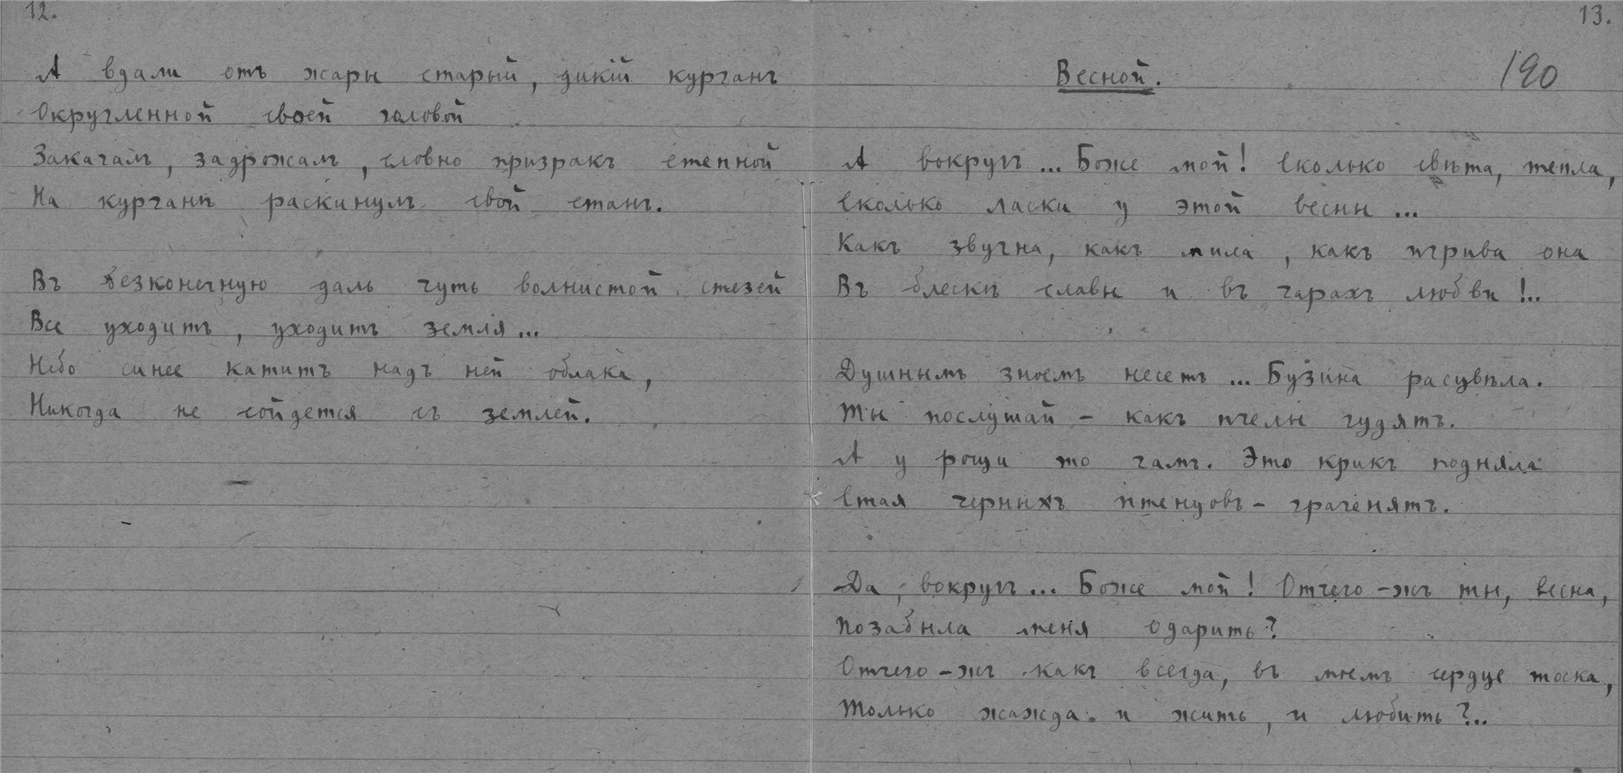 12.
А вдали отъ жары старый, дикій курганъ
Округленной своей головой
Закачалъ, задрожалъ, словно призракъ степной
На курганѣ раскинулъ свой станъ.
Въ безконечную даль чуть волнистой стезей
Все уходитъ, уходитъ земля...
Небо синее катитъ надъ ней облака,
Никогда не сойдется съ землей.
13.
190
Весной.
А вокругъ... Боже мой! Сколько свѣта, тепла,
Сколько ласки у этой весны...
Какъ звучна, какъ мила, какъ игрива она
Въ блескѣ славы и въ чарахъ любви!..
Душнымъ зноемъ несетъ... Бузина расцвѣла.
Ты послушай - какъ пчелы гудятъ.
А у рощи то гамъ. Это крикъ подняла
Стая черныхъ птенцовъ - граченятъ.
Да, вокругъ... Боже мой! Отчего-жъ ты, весна,
Позабыла меня одарить?
Отчего-жъ какъ всегда, въ моемъ сердце тоска,
Только жажда и жить, и любить?..